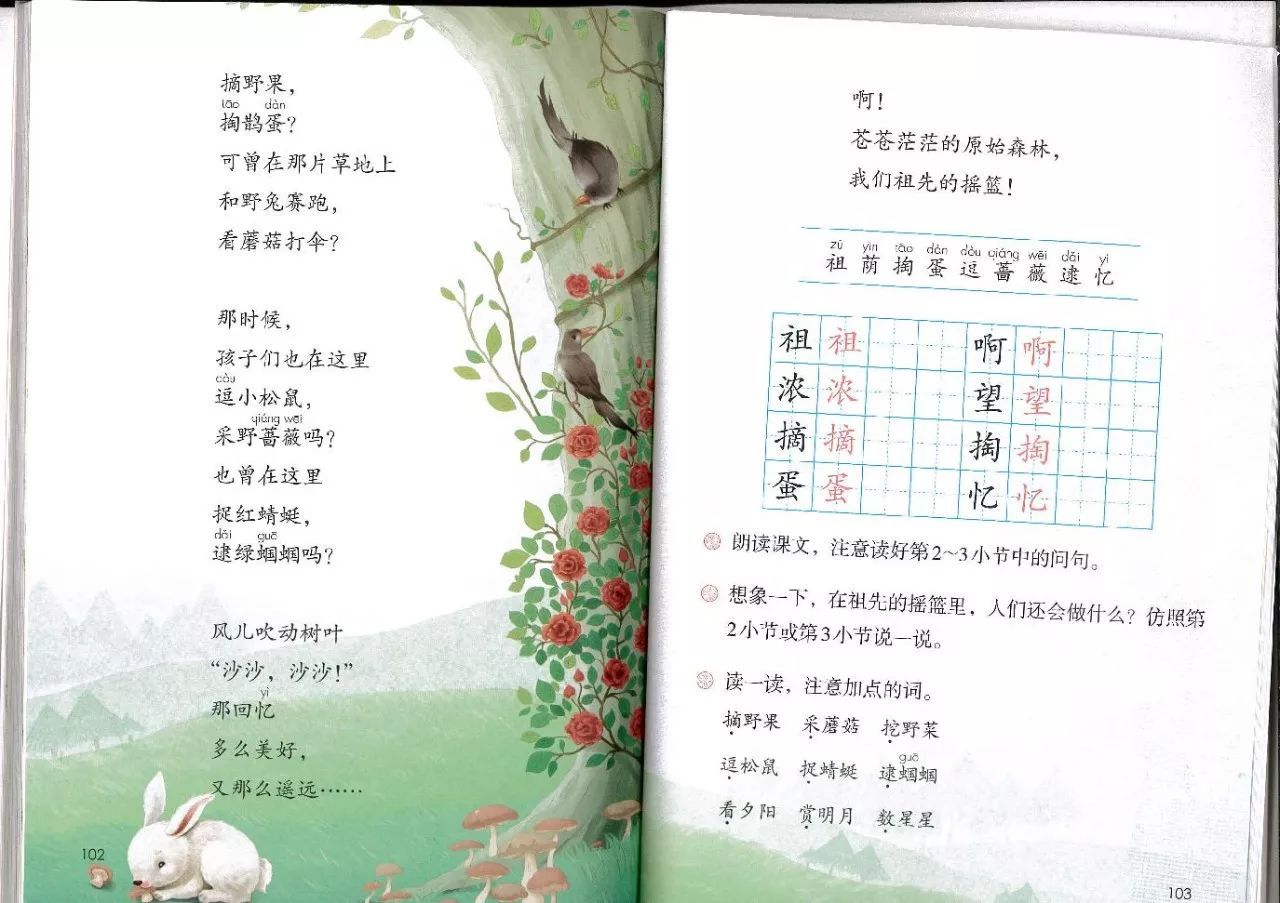 摘野果，
tāo dàn
掏鹊蛋？
可曾在那片草地上
和野兔赛跑，
看蘑菇打伞？
那时候，
孩子们也在这里
dòu
逗小松鼠，
qiáng wēi
采野蔷薇吗？
也曾在这里
捉红蜻蜓，
dǎi guō
逮绿蝈蝈吗？
风儿吹动树叶
“沙沙，沙沙！”
yì
那回忆
多么美好，
又那么遥远……
102
啊！
苍苍茫茫的原始森林，
我们祖先的摇篮！
zǔ yìn tāo dàn dòu qiáng wēi dǎi yì
祖 荫 掏 蛋 逗 蔷 薇 逮 忆
祖 祖 啊 啊
浓 浓 望 望
摘 摘 掏 掏
蛋 蛋 忆 忆
朗读课文，注意读好第2～3小节中的问句。
想象一下，在祖先的摇篮里，人们还会做什么？仿照第
2小节或第3小节说一说。
读一读，注意加点的词。
摘野果 采蘑菇 挖野菜
guō
逗松鼠 捉蜻蜓 逮蝈蝈
看夕阳 赏明月 数星星
103